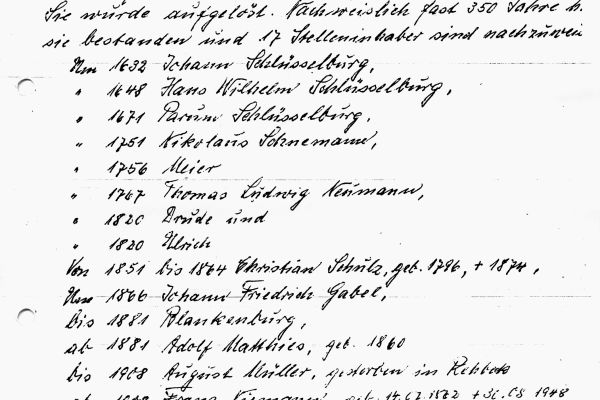 Sie wurde aufgelöst. Nachweislich fast 350 Jahre h
sie bestanden und 17 Stelleninhaber sind nachzuwei
Um 1632 Johann Schlüsselburg,
" 1648 Hans Wilhelm Schlüsselburg,
" 1671 Parum Schlüsselburg,
" 1751 Nikolaus Schnemann,
" 1756 Meier
" 1767 Thomas Ludwig Neumann,
" 1820 Drude und
" 1820 Ulrich
Von 1851 bis 1864 Christian Schulz, geb. 1796, + 1874,
Um 1866 Johann Friedrich Gabel,
bis 1881 Blankenburg,
ab 1881 Adolf Matthies, geb. 1860
bis 1908 August Müller, gestorben in Rehbok
ab Franz geb. 14.02.1882 + 1948